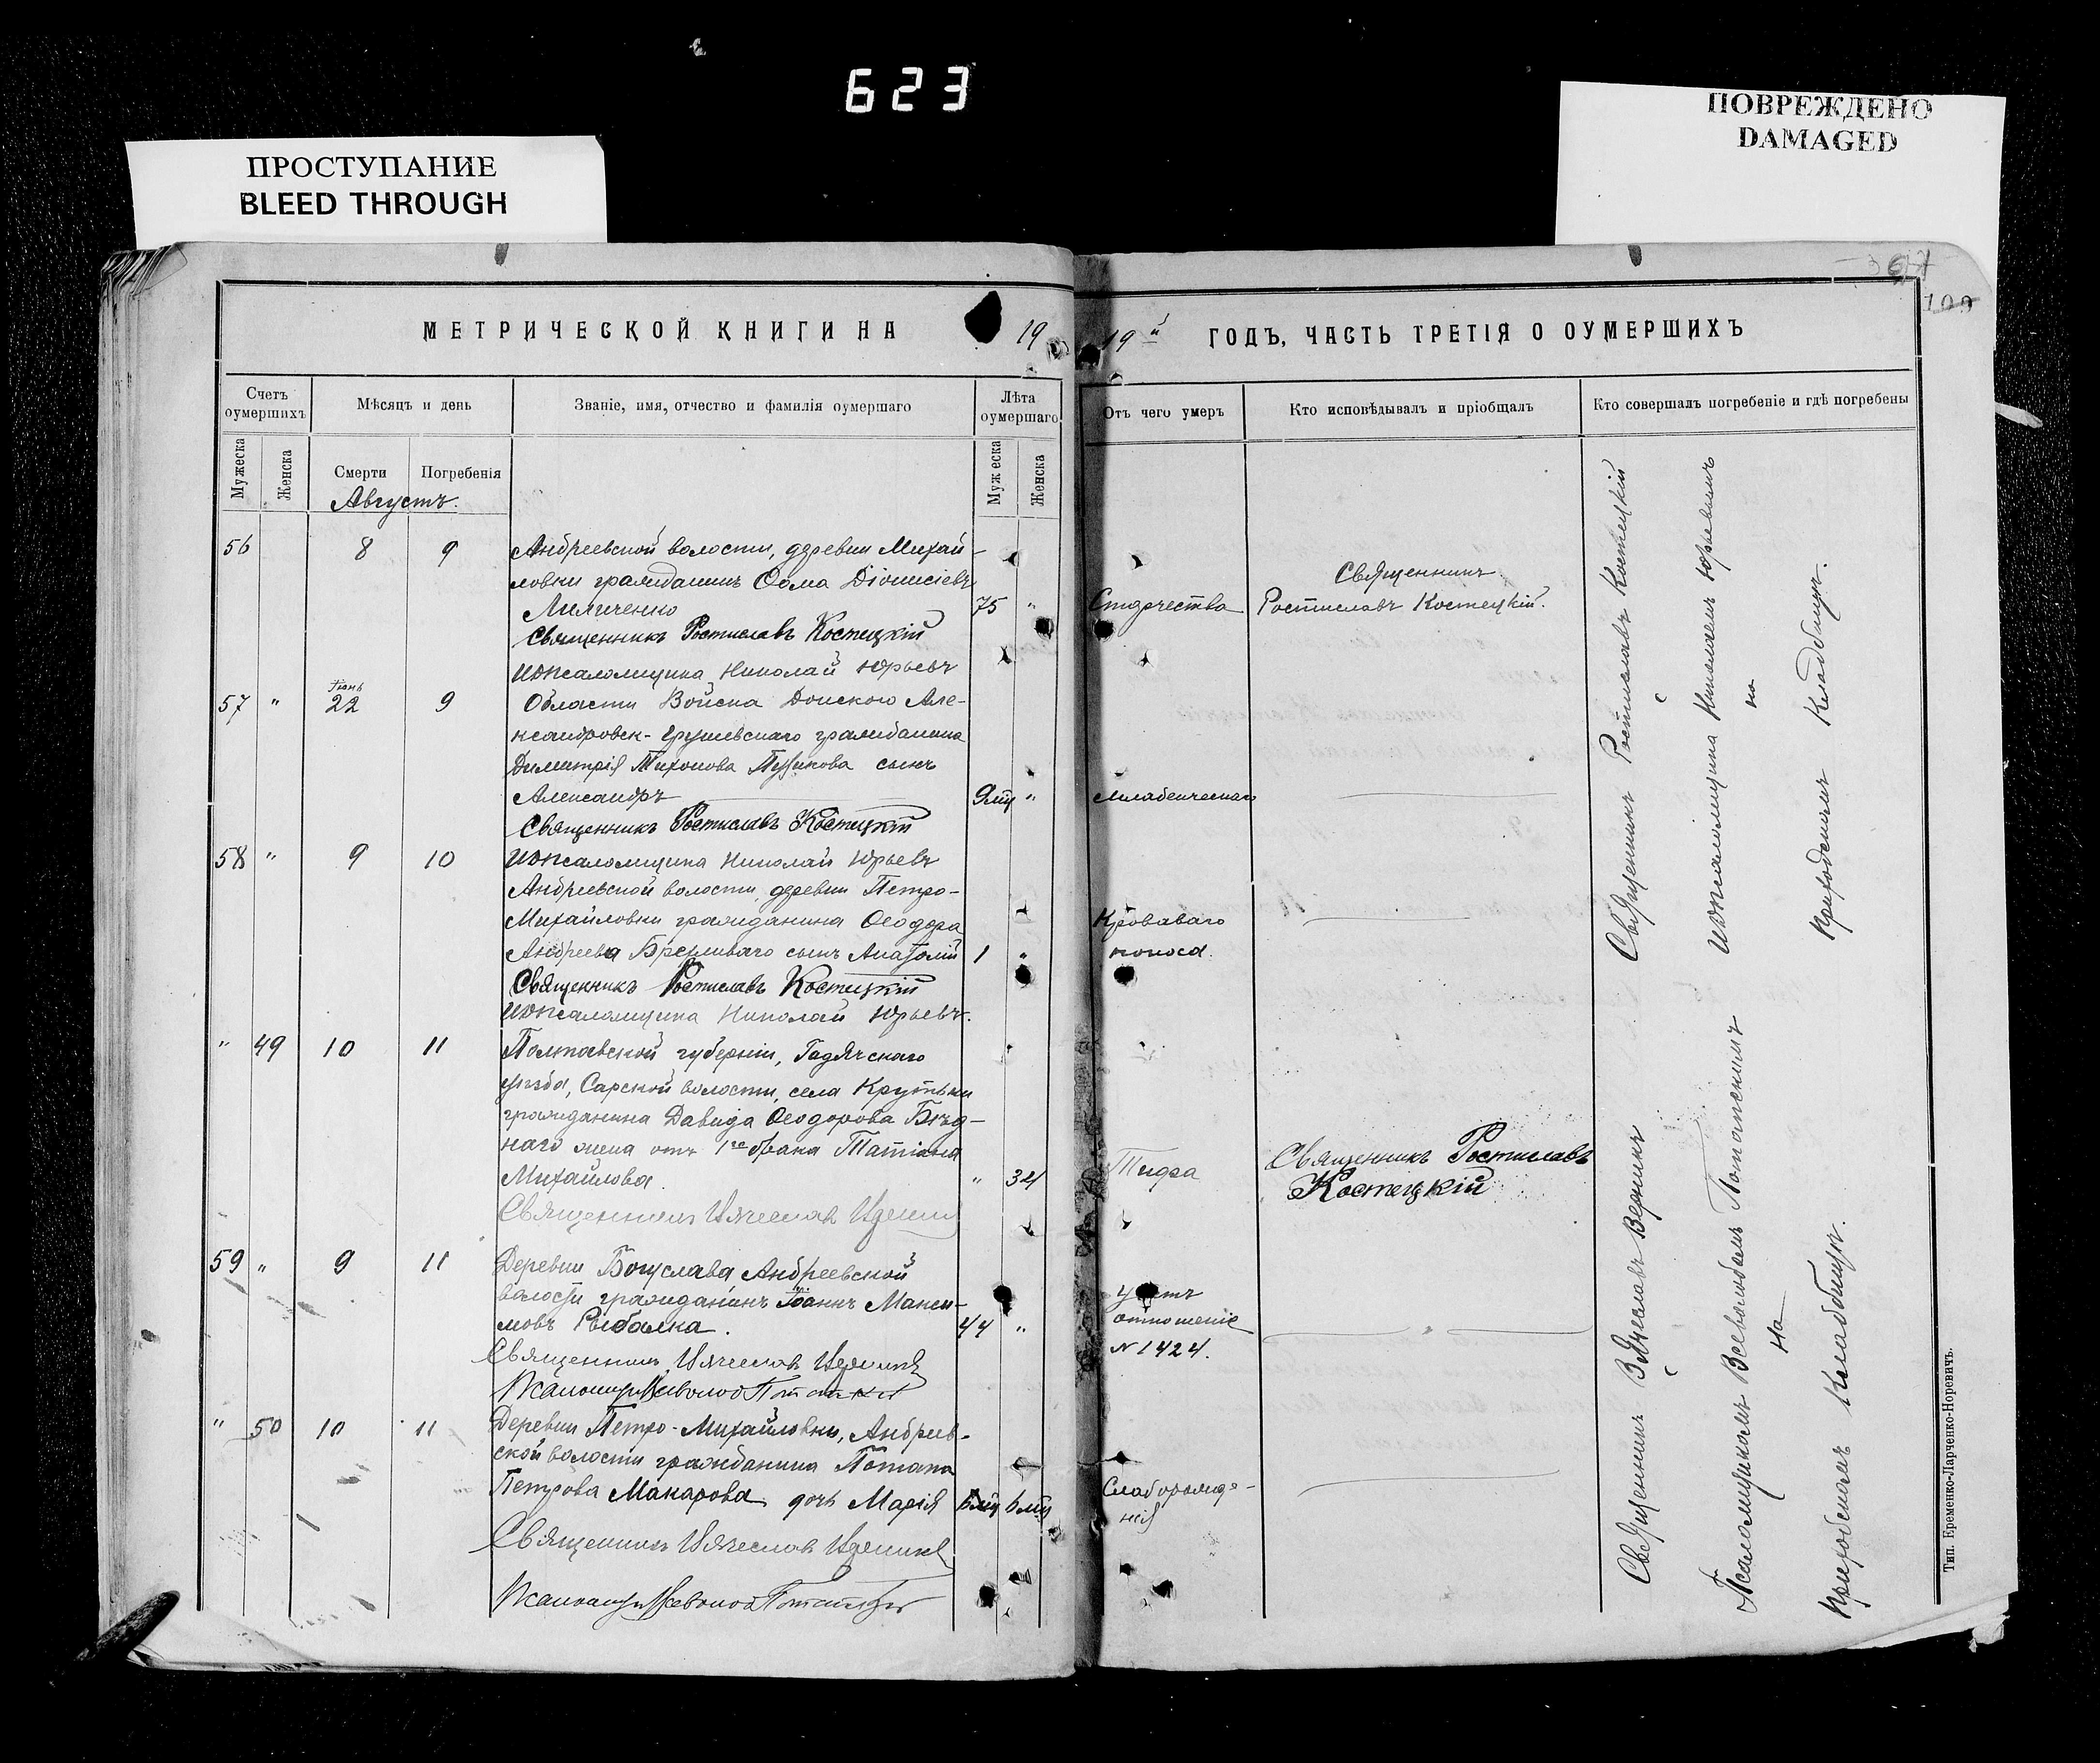 623
ПРОСТУПАНИЕ
BLEED THROUGH
ПОВРЕЖДЕНО
DAMAGED
МЕТРИЧЕСКОЙ КНИГИ НА 19
19й ГОДЪ, ЧАСТЬ ТРЕТІЯ О ОУМЕРШИХЪ
Счетъ оумершихъ
Мѣсяцъ и день
Званіе, имя, отчество и фамилія оумершаго
Лѣта оумершаго
Отъ чего умеръ
Кто исповѣдывалъ и пріобщалъ
Кто совершалъ погребеніе и гдѣ погребены
Мужеска
Женска
Смерти
Погребенія
Мужеска
Женска
Августъ.
56 8 9 Андреевской волости, деревни Михай-
ловки гражданинъ Ѳома Діонисіевъ
75 " Старчества
Священникъ
Ростиславъ Костецкій.
Священникъ Ростиславъ Костецкій
Николай Юрьевъ
57 " Іюнь 22 9 Области Войска Донского Але-
ксандровск-Грушевскаго гражданина
Димитрія Тихонова сынъ
Александръ 9 мц " Младенческаго
Священникъ Ростиславъ Костецкій
58 " 9 10 Николай Юрьевъ
Андреевской волости, деревни Петро-
Михайловки гражданина Ѳеодора
Андреева сынъ Анатолій 1 "
Кроваваго
поноса.
Священникъ Ростиславъ Костецкій
Николай Юрьевъ.
" 49 10 11 Полтавской губерніи, Гадячскаго
уѣзда, Сарской волости, села Крутьки
гражданина Давида Ѳеодорова Бѣд-
наго жена отъ 1го брака Татіана
Михайлова. " 34 Тифа
Священникъ Ростиславъ
Костецкій
Священникъ Вячеславъ
59 " 9 11 Деревни Богуслава Андреевской
волости гражданинъ Іоаннъ Макси-
мовъ Рыбалка. 44 "
отношеніе
№ 1424.
Священникъ Вячеславъ
" 50 10 11 Деревни Петро-Михайловки, Андреев-
ской волости гражданина Потапа
Петрова Макарова дочь Марія 6 мц
Слаборожде-
нія
Священникъ Вячеславъ
Священникъ Ростиславъ Костецкій
с
Николаемъ Юрьевымъ
на
Приходскомъ Кладбищѣ.
Священникъ Вячеславъ
с
Псаломщикомъ Всеволодомъ Потапскимъ
На
Приходскомъ Кладбищѣ.
Тип. Еременко-Ларченко-Норевичъ.